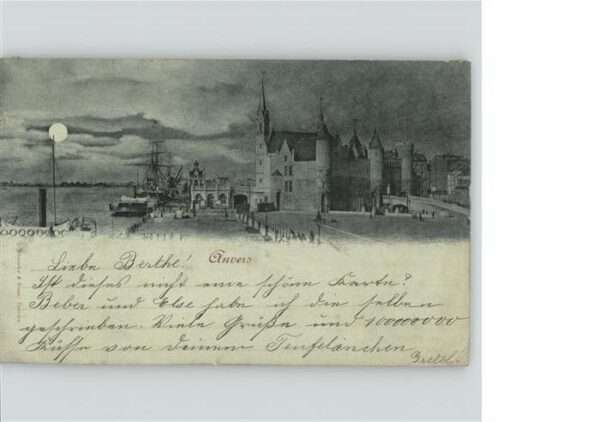 Anvers
Liebe Berthe!
Ist dieses nicht eine schöne Karte?
Beber und Else habe ich die selben
geschrieben. Viele Grüße und 100000000
Küsse von deinem Teufelänchen